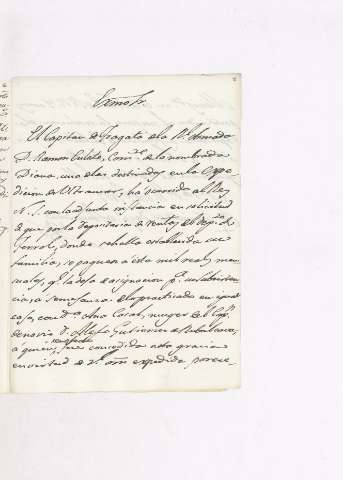 Exmo Sr.
El Capitan de Fragata de la Rl. Armada
D. Ramon Eulate, Com.te de la nombrada
Diana, una de las destinadas en la Expe-
dicion de Ultramar, ha ocurrido al Rey
N. S. con la adjunta instancia en solicitud
de que por la depositaria de rentas del Dep.to de
Ferrol, donde se halla establecida su
familia, se paguen a esta mil reales men-
suales, q.e la deja de asignacion p.a su subsisten-
cia, a semejanza de lo practicado en igual
caso, con D.a Ana Casal, muger del Cap.n
de navio D.
a quien respecto fue concedida esta gracia
en virtud de Rl. orn. expedida por ese